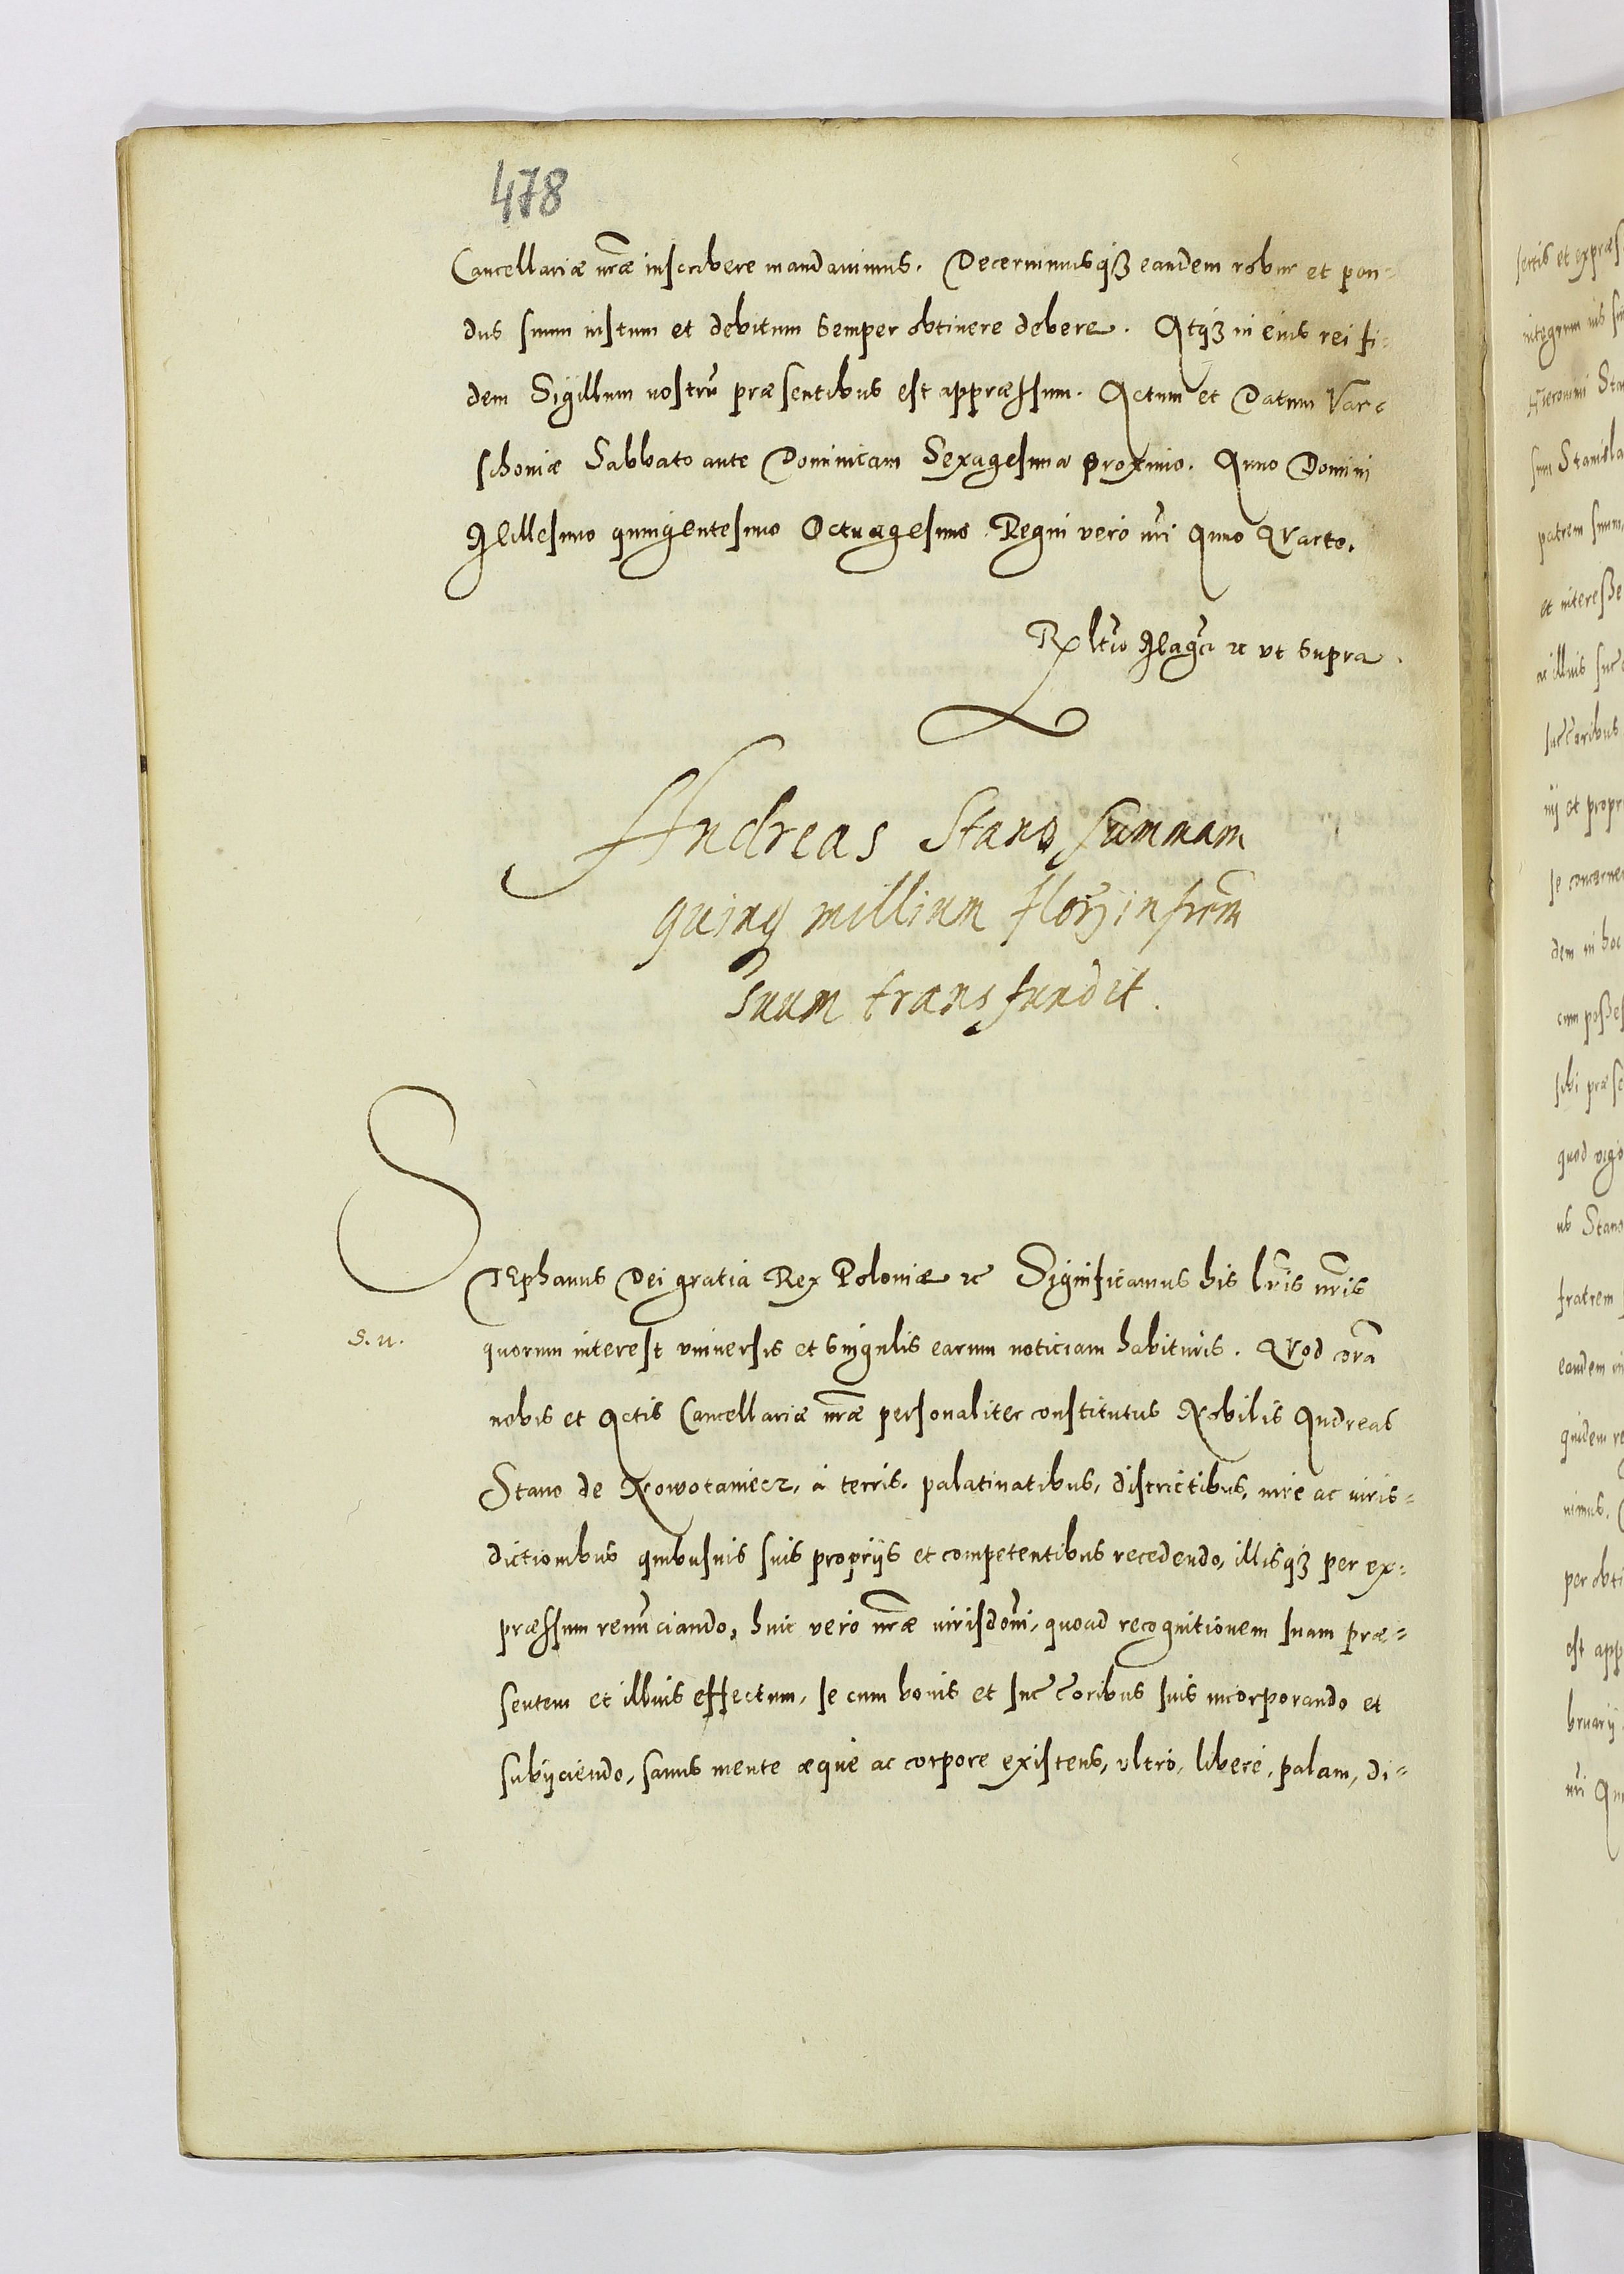 478
Cancellariæ nræ inscribere mandauimus. Decernimusqȝ eandem robur et pon-
dus suum iustum et debitum semper obtinere debere. Atqȝ in eius rei fi-
dem Sigillum nostrũ præsentibus est appræssum. Actum et Datum Var-
schouiæ Sabbato ante Dominicam Sexagesimæ proximo. Anno Domini
Millesimo quingentesimo Octuagesimo Regni vero nri Anno Quarto.
Rltio Magci ꝛc vt supra.
Andreas Stano summam
quinqȝ millium florȝ in frem
suum transfundit.
STEphanus Dei gratia Rex Poloniæ ꝛc Significamus his lris nris
s. n.
quorum interest vniuersis et singulis earum noticiam habituris. Quod corã
nobis et Actis Cancellariæ nræ personaliter constitutus Nobilis Andreas
Stano de Nowotaniecz, à terris, palatinatibus, districtibus, iure ac iuris-
dictionibus quibusuis suis proprijs et competentibus recedendo, illisqȝ per ex-
præssum renũciando, huic vero nræ iurisdoni, quoad recognitionem suam præ-
sentem et illius effectum, se cum bonis et succoribus suis incorporando et
subijciendo, sanus mente æque ac corpore existens, vltrò, liberè, palam, di-
sertis et expræs
integrum ius su
Hieronimi Sta
sum Stanisla
patrem suum,
et interesse
ac illius suc
succoribus
ij et propr
se concerne
dem in hoc
cum posses
sibi præse
quod vigo
us Stano
fratrem
eandem in
quidem re
nimus.
per obti
est app
bruarij
nri An